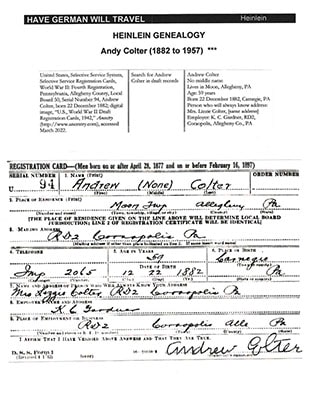 HAVE GERMAN WILL TRAVEL
Heinlein
HEINLEIN GENEALOGY
Andy Colter (1882 to 1957) ***
United States, Selective Service System,
Selective Service Registration Cards,
World War II: Fourth Registration,
Pennsylvania, Allegheny County, Local
Board 50, Serial Number 94, Andrew
Colter, born 22 December 1882; digital
image, "U.S., World War II Draft
Registration Cards, 1942," Ancestry
(http://www.ancestry.com), accessed
March 2022.
Search for Andrew
Colter in draft records
Andrew Colter
No middle name
Lives in Moon, Allegheny, PA
Age: 59 years
Born 22 December 1882, Carnegie, PA
Person who will always know address:
Mrs. Lizzie Colter, [same address]
Employer: K. C. Gardner, RD2,
Coraopolis, Allegheny Co., PA
REGISTRATION CARD—(Men born on or after April 28, 1877 and on or before February 16, 1897)
SERIAL NUMBER
1. NAME (Print)
ORDER NUMBER
U 94
Andrew (None) Colter
(First) (Middle) (Last)
2. PLACE OF RESIDENCE (Print)
Moon Twp Allegheny Pa
[THE PLACE OF RESIDENCE GIVEN ON THE LINE ABOVE WILL DETERMINE LOCAL BOARD
JURISDICTION; LINE 2 OF REGISTRATION CERTIFICATE WILL BE IDENTICAL]
3. MAILING ADDRESS
RD2 Coraopolis Pa
4. TELEPHONE
5. AGE IN YEARS
59
6. PLACE OF BIRTH
Carnegie
DATE OF BIRTH
2065 12 22 1882 Pa
7. NAME AND ADDRESS OF PERSON WHO WILL ALWAYS KNOW YOUR ADDRESS
Mrs Lizzie Colter RD2 Coraopolis Pa
8. EMPLOYER'S NAME AND ADDRESS
K C Gardner
9. PLACE OF EMPLOYMENT OR BUSINESS
RD2 Coraopolis Alle Pa
I AFFIRM THAT I HAVE VERIFIED ABOVE ANSWERS AND THAT THEY ARE TRUE.
D. S. S. Form 1
Andrew Colter